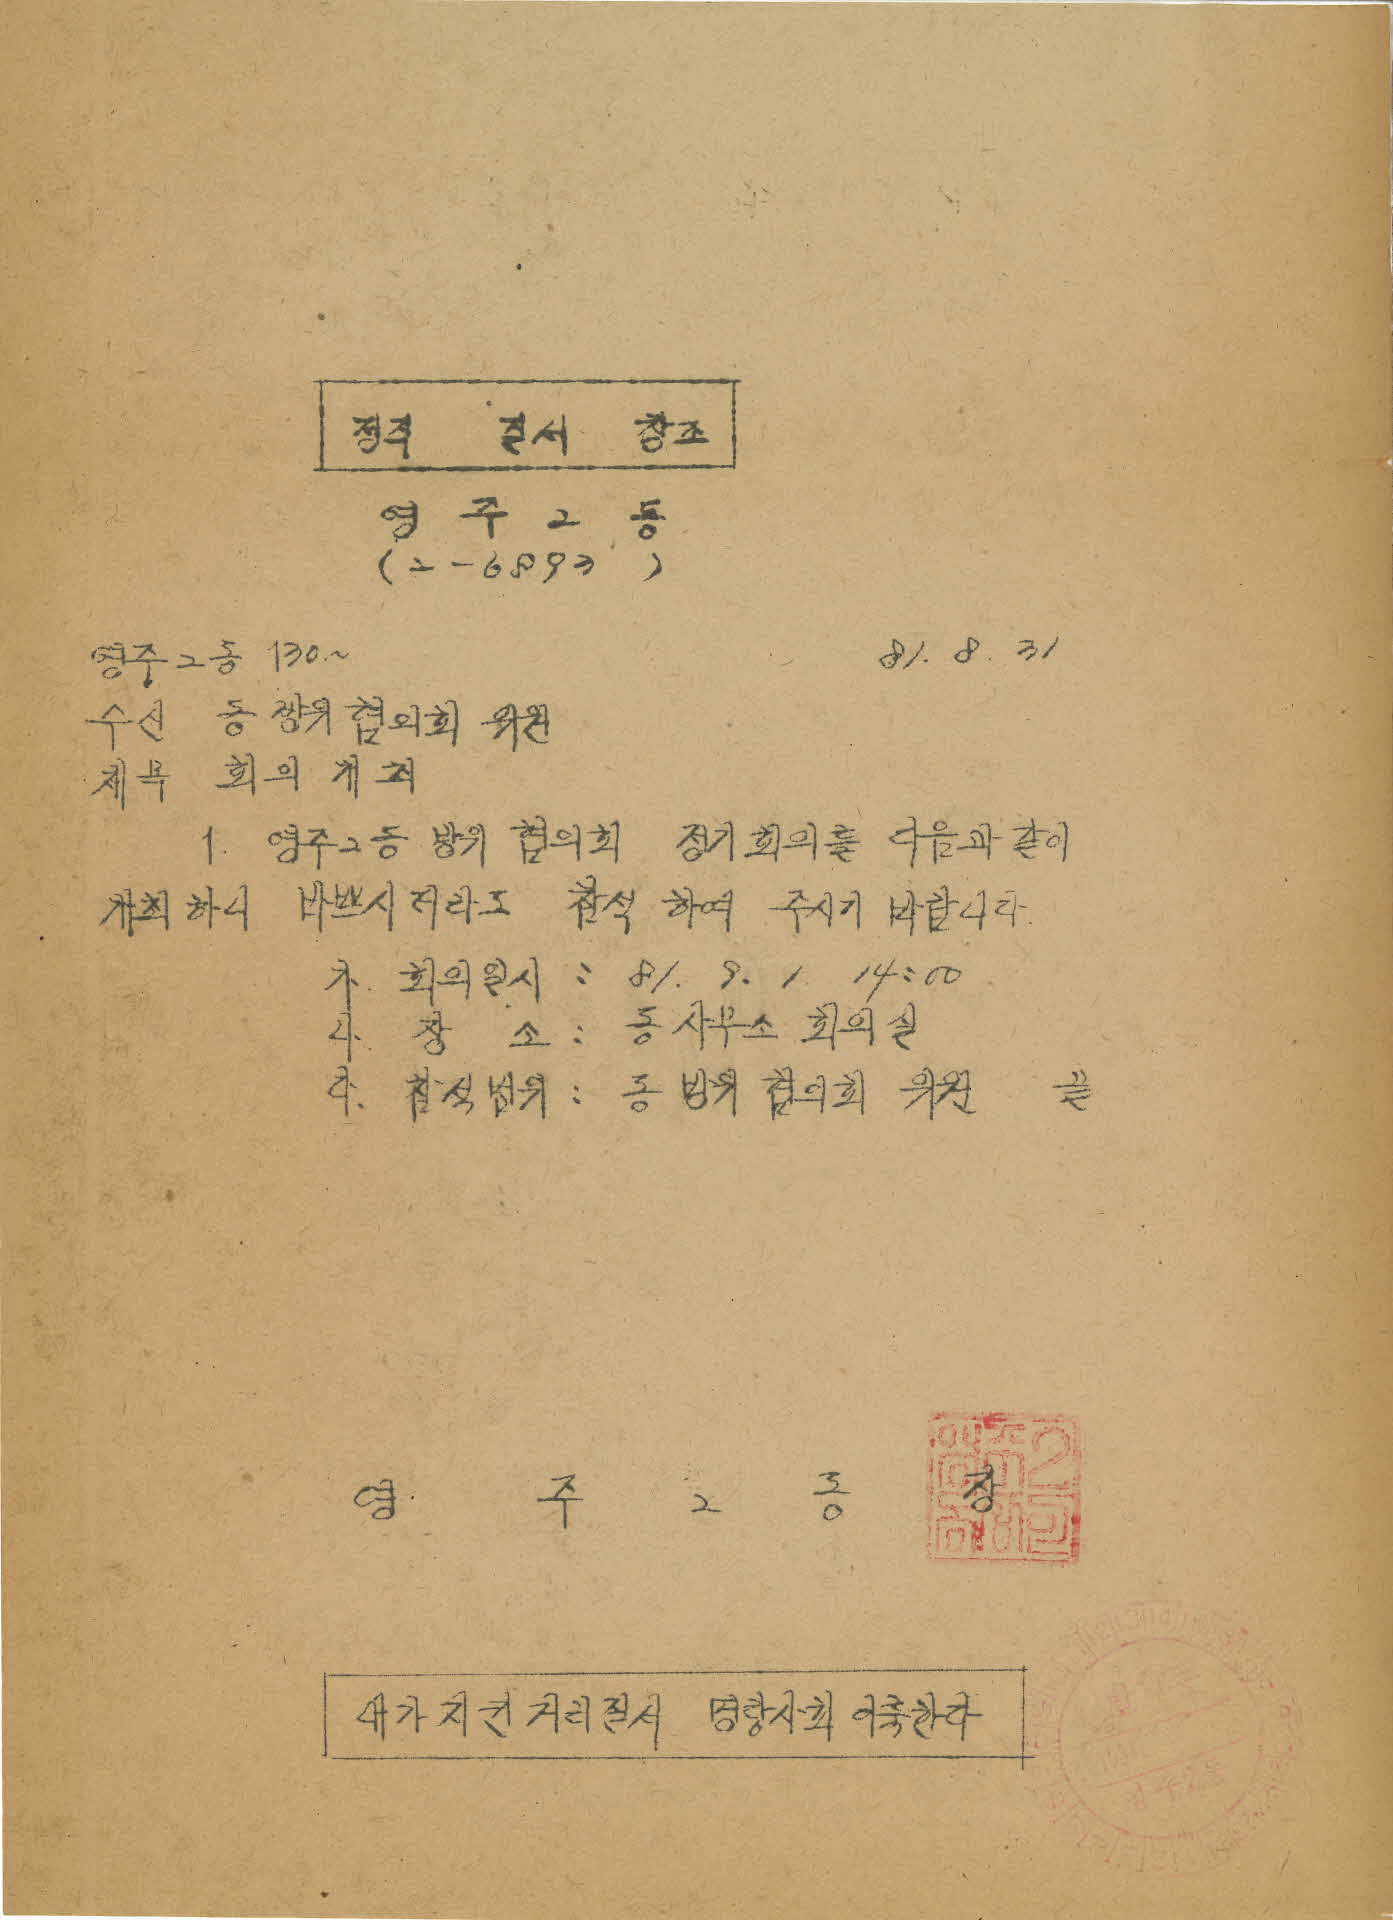 정직 질서 창조
영주2동
(2-6893)
영주2동 130.~ 81. 8. 31
수신 동 방위협의회 위원
제목 회의 개최
1. 영주2동 방위 협의회 정기회의를 다음과 같이
개최하니 바쁘시더라도 참석 하여 주시기 바랍니다.
가. 회의일시 : 81. 9. 1. 14:00
나. 장 소 : 동사무소 회의실
다. 참석범위 : 동 방위 협의회 위원 끝
영 주 2 동 장
내가지킨 거리질서 명랑사회 이룩한다